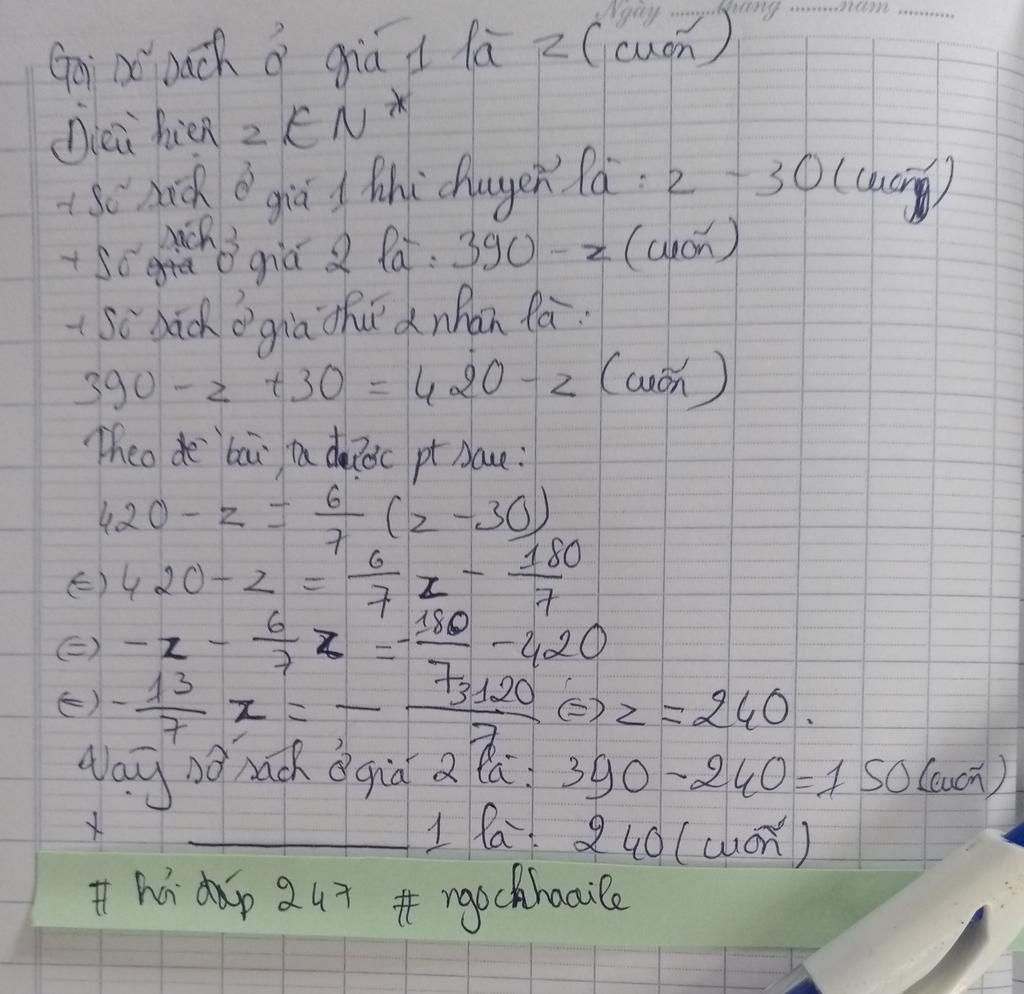 Ngày ......... tháng ......... năm .........
Gọi số sách ở giá 1 là z (cuốn)
Điều kiện z ∈ N*
+ Số sách ở giá 1 khi chuyển là : z - 30 (cuốn)
+ Số sách ở giá 2 là : 390 - z (cuốn)
+ Số sách ở giá thứ 2 nhận là :
390 - z + 30 = 420 - z (cuốn)
Theo đề bài, ta được pt sau :
420 - z = 6/7 (z - 30)
⇔ 420 - z = 6/7 z - 180/7
⇔ -z - 6/7 z = -180/7 - 420
⇔ -13/7 z = - 3120/7 ⇔ z = 240.
Vậy số sách ở giá 2 là : 390 - 240 = 150 (cuốn)
+ ________ 1 là : 240 (cuốn)
# hỏi đáp 247 # ngockhaaile